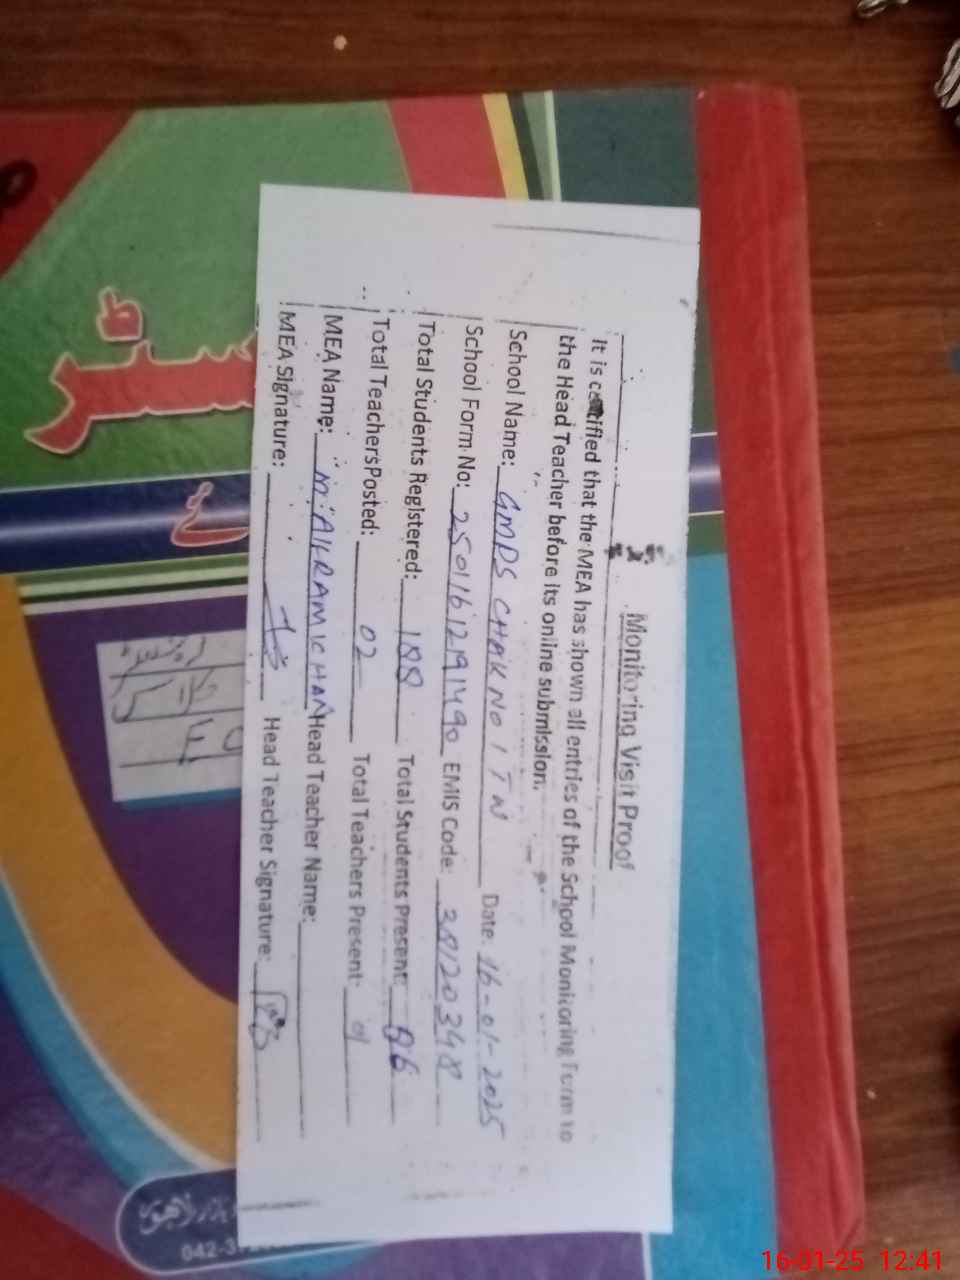 Monitoring Visit Proof
It is certified that the MEA has shown all entries of the School Monitoring Form to
the Head Teacher before its online submission.
School Name: GMPS CHAK NO 1 TW Date: 16-01-2025
School Form No: 25011612191490 EMIS Code: 38120348
Total Students Registered: 188 Total Students Present: 86
Total Teachers Posted: 02 Total Teachers Present: 01
MEA Name: M. AKRAM KHAN Head Teacher Name:
MEA Signature: Head Teacher Signature:
042-3
16-01-25 12:41